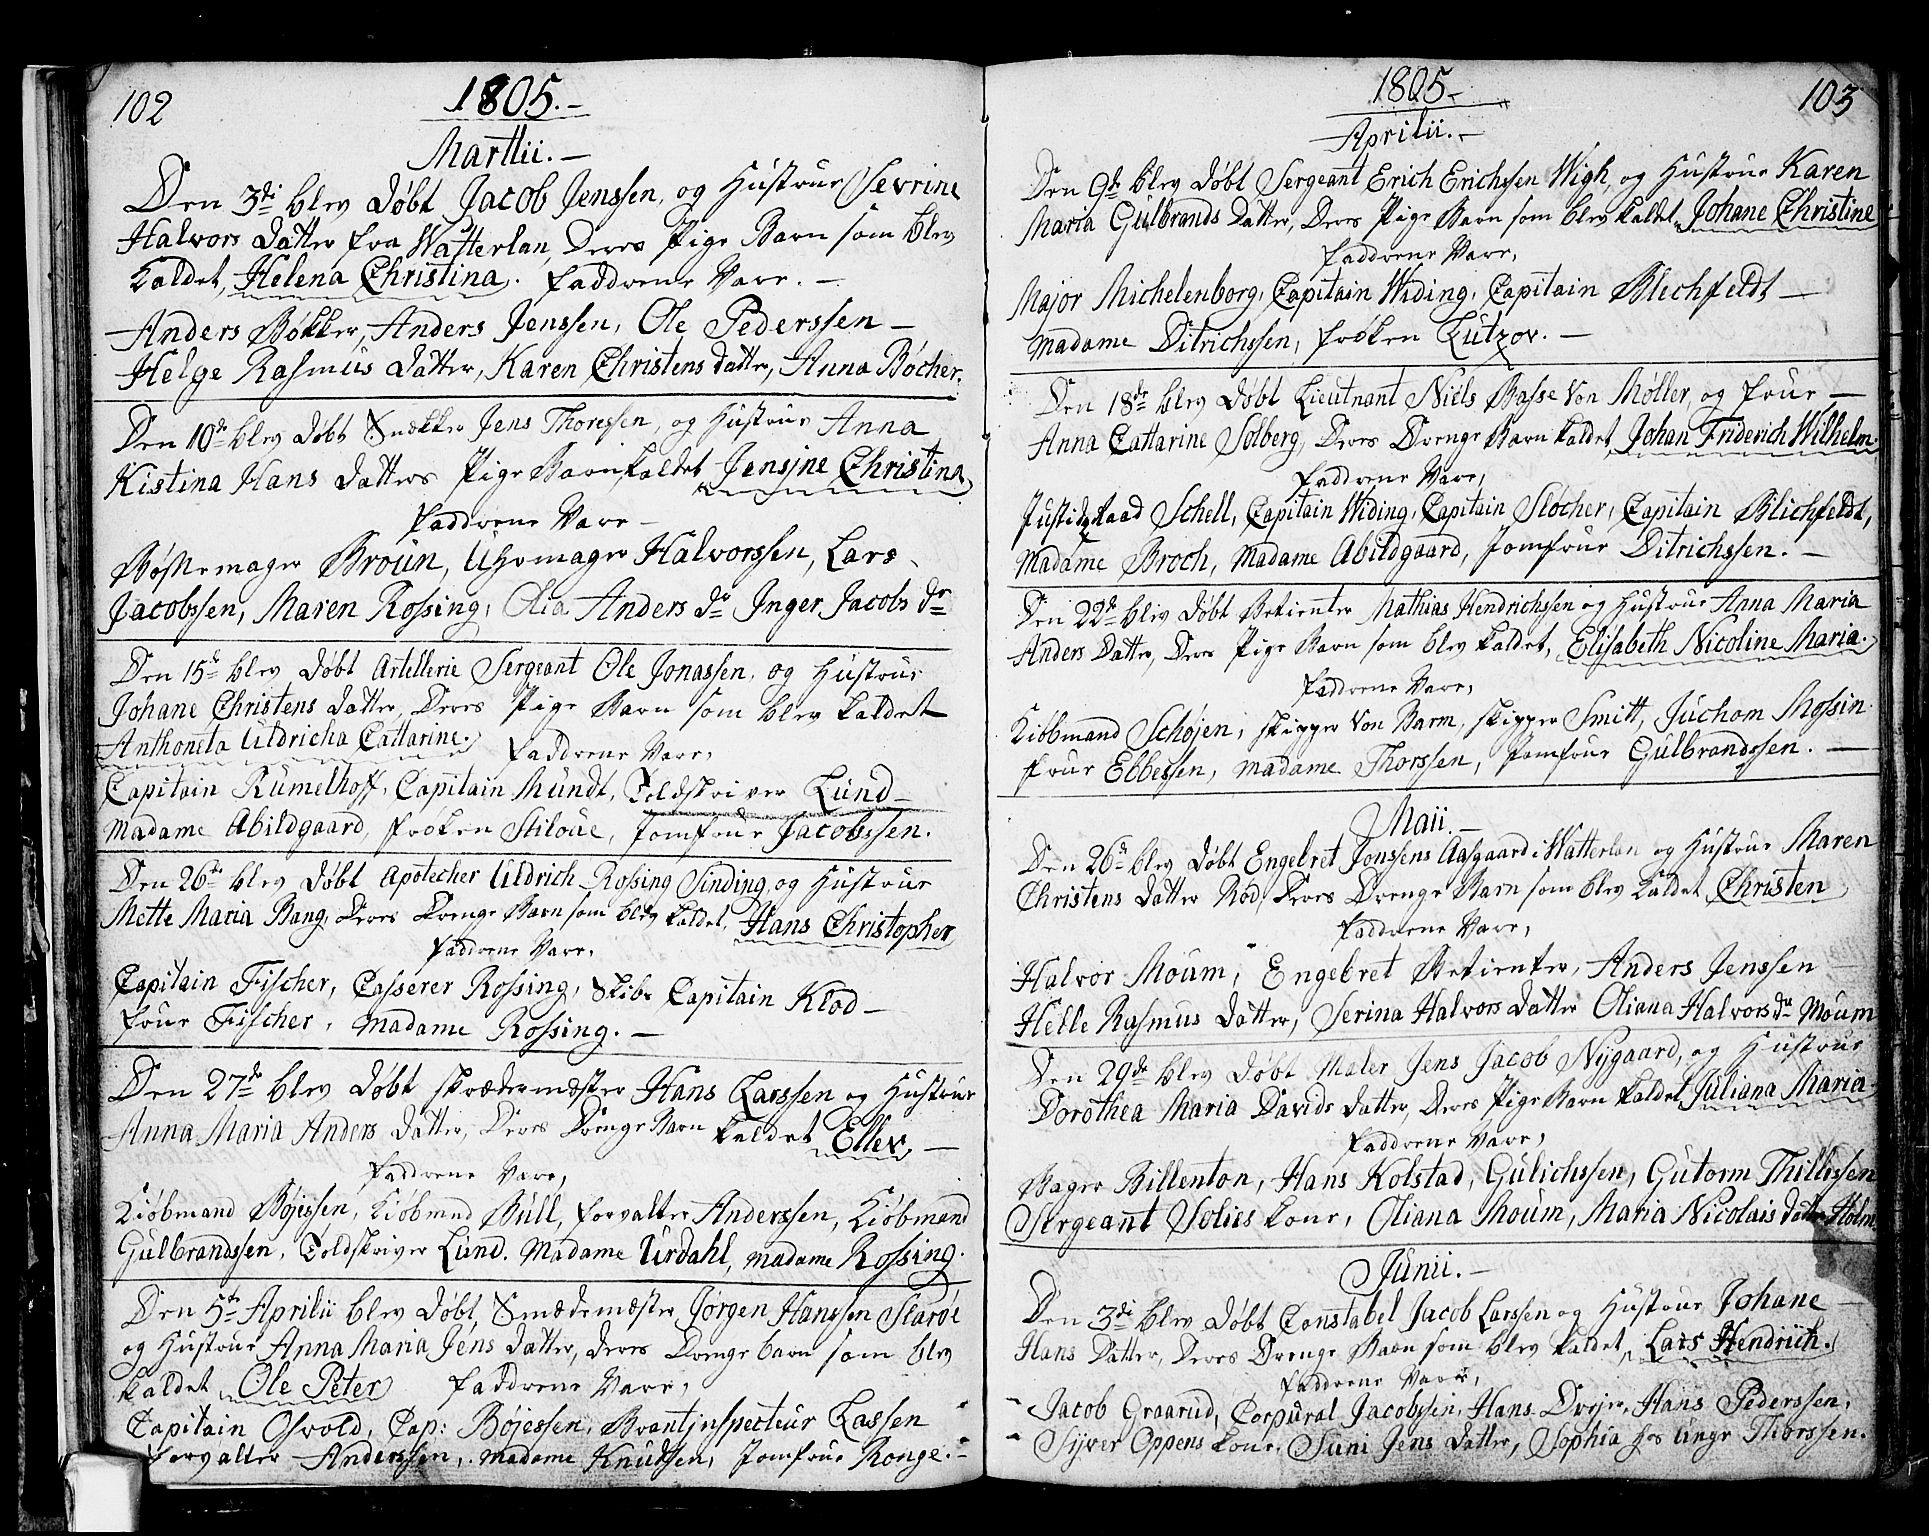 102
1805.-
Martii.-
Den 3di blev døbt Jacob Jenssen, og Hustrue Sevrine
Halvors datter fra Watterlan, deres Pige Barn som blev
kaldet, Helena Christina. Faddrene Vare.-
Anders Bøkker, Anders Jenssen, Ole Pederssen-
Helge Rasmus datter, Karen Christens datter, Anna Bøcher.
Den 10de blev døbt Snækker Jens Thoressen, og Hustrue Anna
Kistina Hans datters Pige Barn kaldet Jensine Christina
Faddrene Vare-
Bøssemager Broun, Uhrmager Halvorssen, Lars
Jacobssen, Maren Rossing, Olia Anders dr Inger Jacobs dr
Den 15de blev døbt Artillerie Sergeant Ole Jonassen, og Hustrue
Johane Christens datter, Deres Pige Barn som blev kaldet
Anthoneta Uldricha Cattarine. Faddrene Vare,
Capitain Rumelhoff, Capitain Mundt, Toldskriver Lund-
Madame Abildgaard, frøken Stiloue, Jomfrue Jacobssen.
Den 26de blev døbt Apotecher Uldrich Rossing Sinding, og Hustrue
Mette Maria Bang, Deres Drenge Barn som blev kaldet, Hans Christopher
Faddrene Vare,
Capitain Fischer, Casserer Rossing, Skibs Capitain Klod-
frue Fischer, Madame Rossing.-
Den 27de blev døbt skrædermæster Hans Larssen og Hustrue
Anna Maria Anders datter, Deres Drenge Barn kaldet Ellev-
Faddrene Vare,
Kiøbmand Bøjessen, Kiøbmnd Bull, forvalter Anderssen, Kiøbmand
Gulbrandssen, Toldskriver Lund. Madame Urdahl, madame Rossing.
Den 5te Aprilii blev døbt, Smædemæster Jørgen Hanssen Skarøe
og Hustrue Anna Maria Jens datter, deres Drenge barn som blev
kaldet Ole Peter Faddrene Vare,
Capitain Osvold, Cap: Bøjessen, Brantinspecteur Lassen
forvalter Anderssen, madame Knudssen, Jomfrue Ronge.-
103
1805-
Aprilii.-
Den 9de blev døbt Sergeant Erich Erichssen Wigh, og Hustrue Karen
Maria Gulbrands datter, Deres Pige Barn som blev kaldet Johane Christine
Faddrene Vare,
Major Michelenborg, Capitain Widing, Capitain Blechfeldt-
Madame Ditrichssen, frøken Lutzov.-
Den 18de blev døbt Lieutnant Niels Basse von Møller, og frue-
Anna Cattarine Solberg, Deres Drenge Barn kaldet Johan Friderich Wilhelm.
Faddrene Vare,
Justidsraad Schell, Capitain Widing, Capitain Slocher, Capitain Blichfeldt,
Madame Broch, Madame Abildgaard, Jomfrue Ditrichssen.-
Den 22de blev døbt Betienter Mathias Hendrichssen og Hustrue Anna Maria
Anders Datter, Deres Pige Barn som blev kaldet, Elisabeth Nicoline Maria.
Faddrene Vare,
Kiøbmand Schøjen, skipper von Barm, skipper Smitt, Juchom Mossin
frue Ebbessen, madame Thorssen, Jomfrue Gulbrandssen.-
Maii.-
Den 26de blev døbt Engebret Jonssens Aasgaard i Watterlan og Hustrue Maren
Christens datter Rød, Deres Drenge Barn som blev kaldet Christen
Faddrene Vare,
Halvor Moum, Engebret Betienter, Anders Jenssen
Helle Rasmus datter, Serina Halvors datter Oliana Halvors dr Moum
Den 29de blev døbt Maler Jens Jacob Nygaard, og Hustrue
Dorothea Maria Davids datter, Deres Pige Barn kaldet Juliana Maria
Faddrene Vare,
Bager Billenton, Hans Kolstad, Gulichssen, Gutorm Thillissen
Sergeant Solies kone, Oliana Moum, Maria Nicolais datter Holm
Junii.-
Den 3di blev døbt Constabel Jacob Larssen og Hustrue Johane
Hans Datter, Deres Drenge Barn som blev kaldet, Lars Hendrich.
Faddrene Vare,
Jacob Graarud, Corpural Jacobssen, Hans Drejer, Hans Pederssen,
Syver Oppens kone, Suni Jens datter, Sophia hos Unge Thorssen.